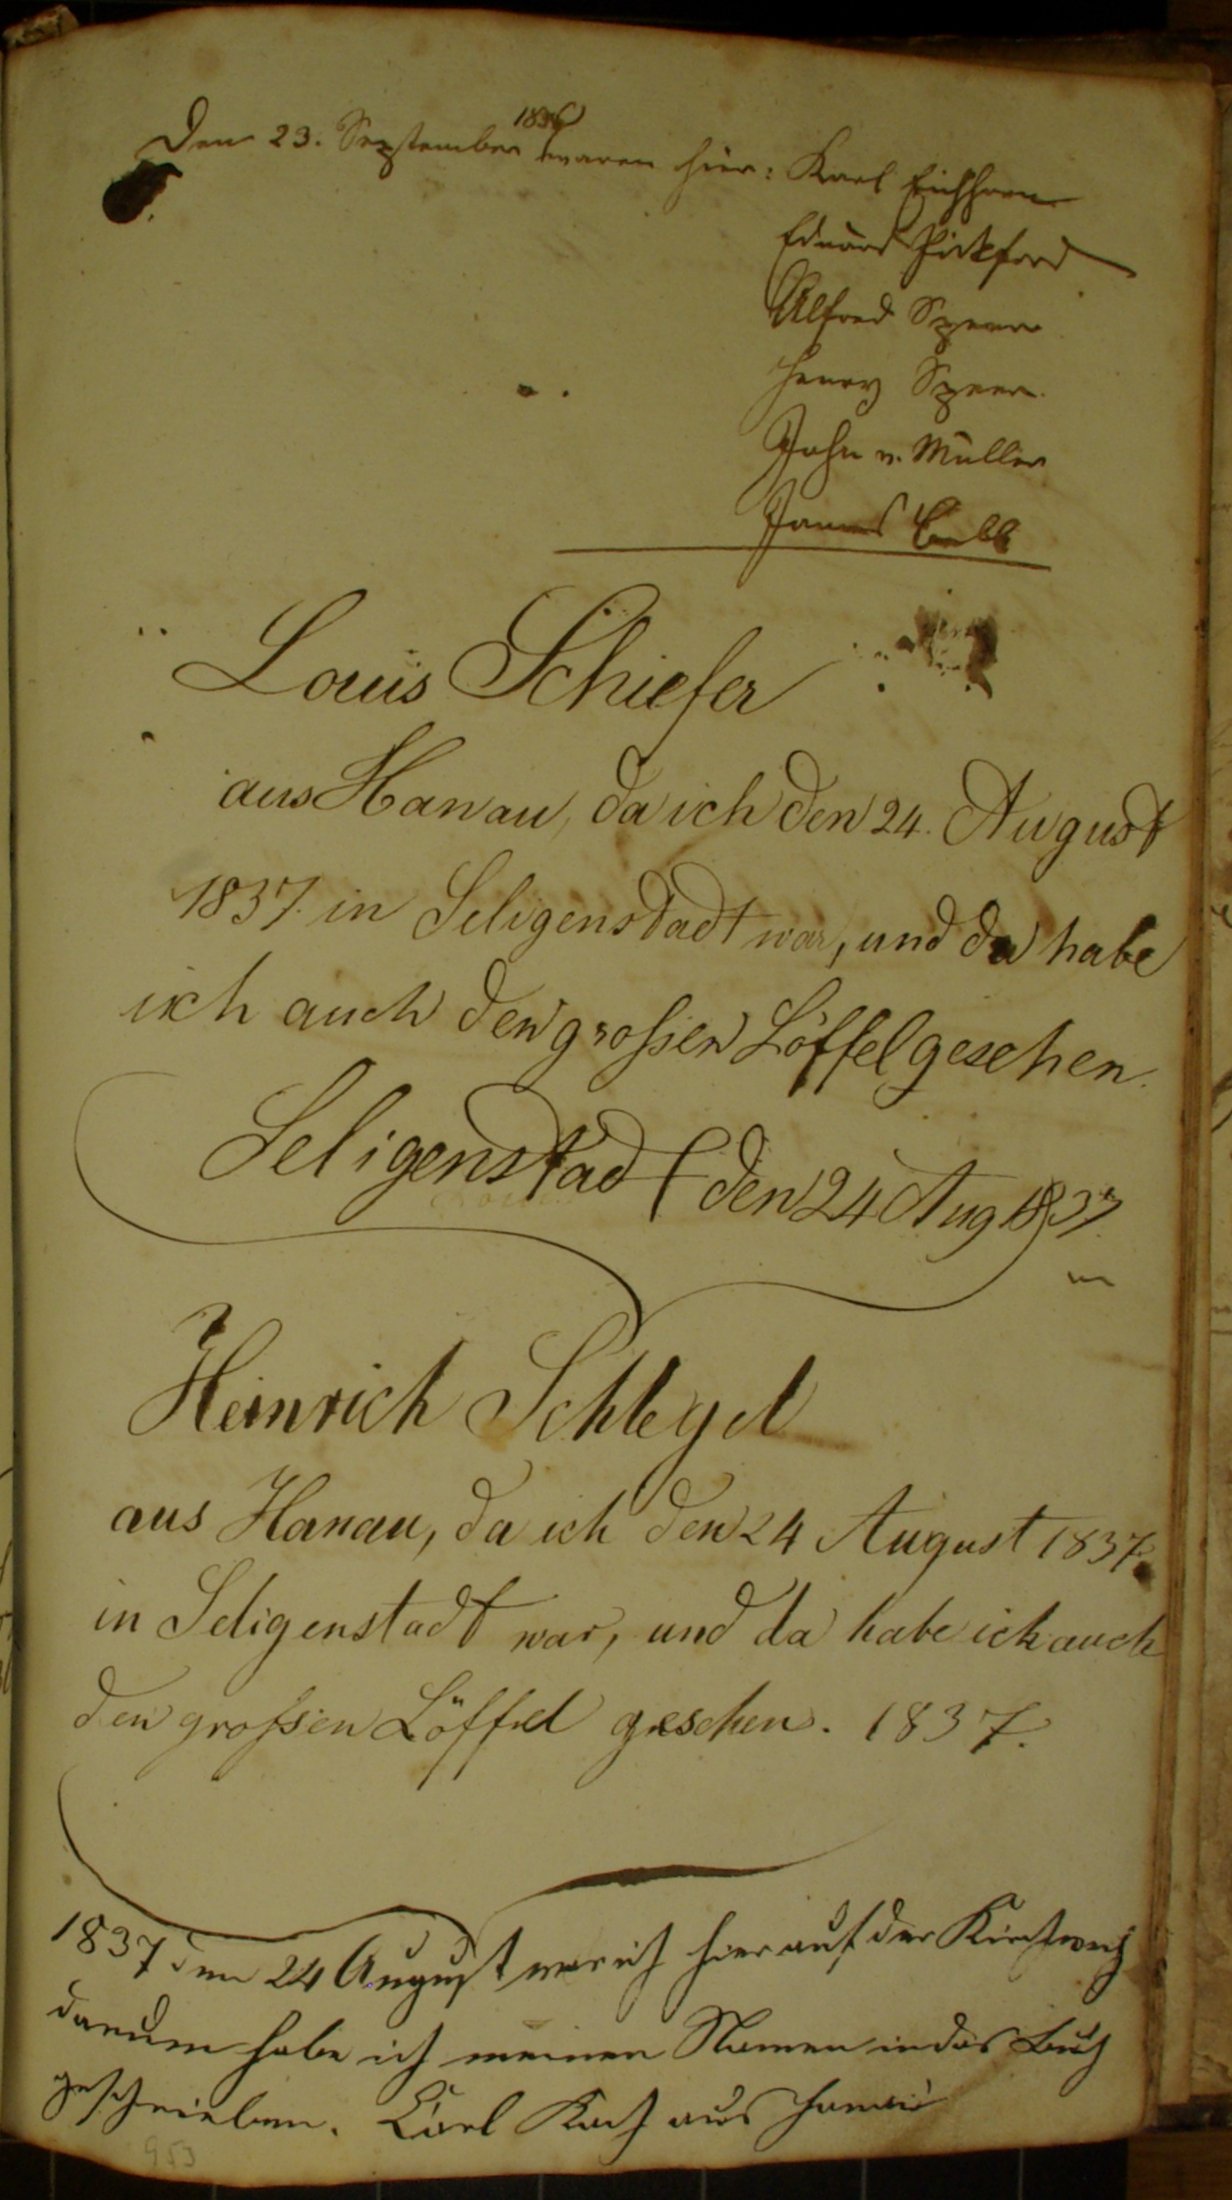 Den 23. September 1836 waren hier: Karl Eichhorn
Eduard Pickford
Alfred Speer
Henry Speer.
John v. Müller
James
Louis Schiefer
aus Hanau, da ich den 24. August
1837. in Seligenstadt war, und da habe
ich auch den großen Löffel gesehen.
Seligenstadt den 24 Aug 1837.
Heinrich Schlegel
aus Hanau, da ich den 24 August 1837.
in Seligenstadt war, und da habe ich auch
den großen Löffel gesehen. 1837.
1837 den 24 August war ich hier auf der Kirchweih
darum habe ich meinen Namen in das Buch
geschrieben. Carl Koch aus Hanau
953